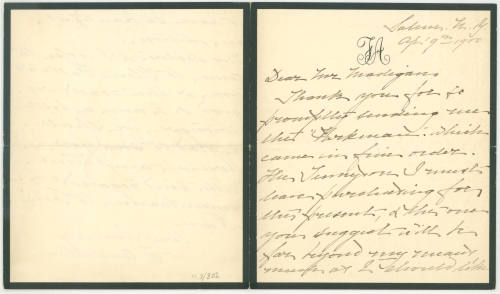 Salem. N. Y.
Apl 9th 1900
JA
Dear Mr Madigan
Thank you for so
promptly sending me
the "Parkman": which
came in fine order.
The Tennyson I must
leave purchasing for
the present, & the one
you suggest will be
far beyond my means
much as I should like